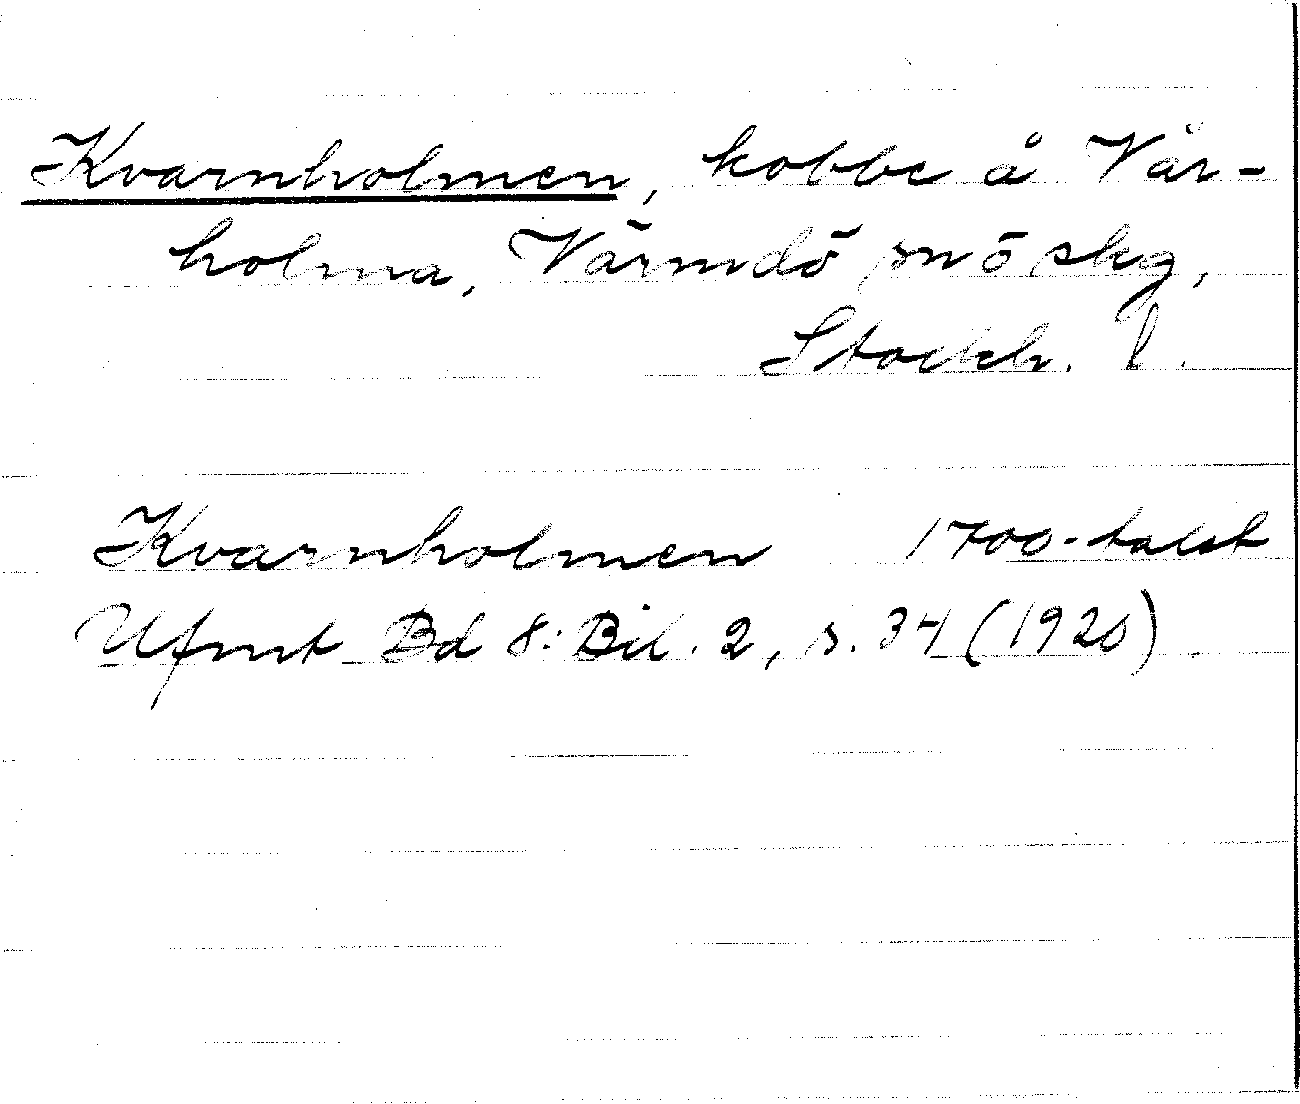 Kvarnholmen, kobbe å Vår-
holma, Värmdö snö skg,
Stockh. l.
Kvarnholmen 1700-talet
Ufmt Bd 8: Bil. 2, s. 34 (1920)